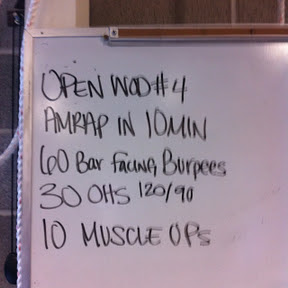 OPEN WOD #4
AMRAP IN 10MIN
60 Bar FACING Burpees
30 OHS 120/90
10 MUSCLE UPs